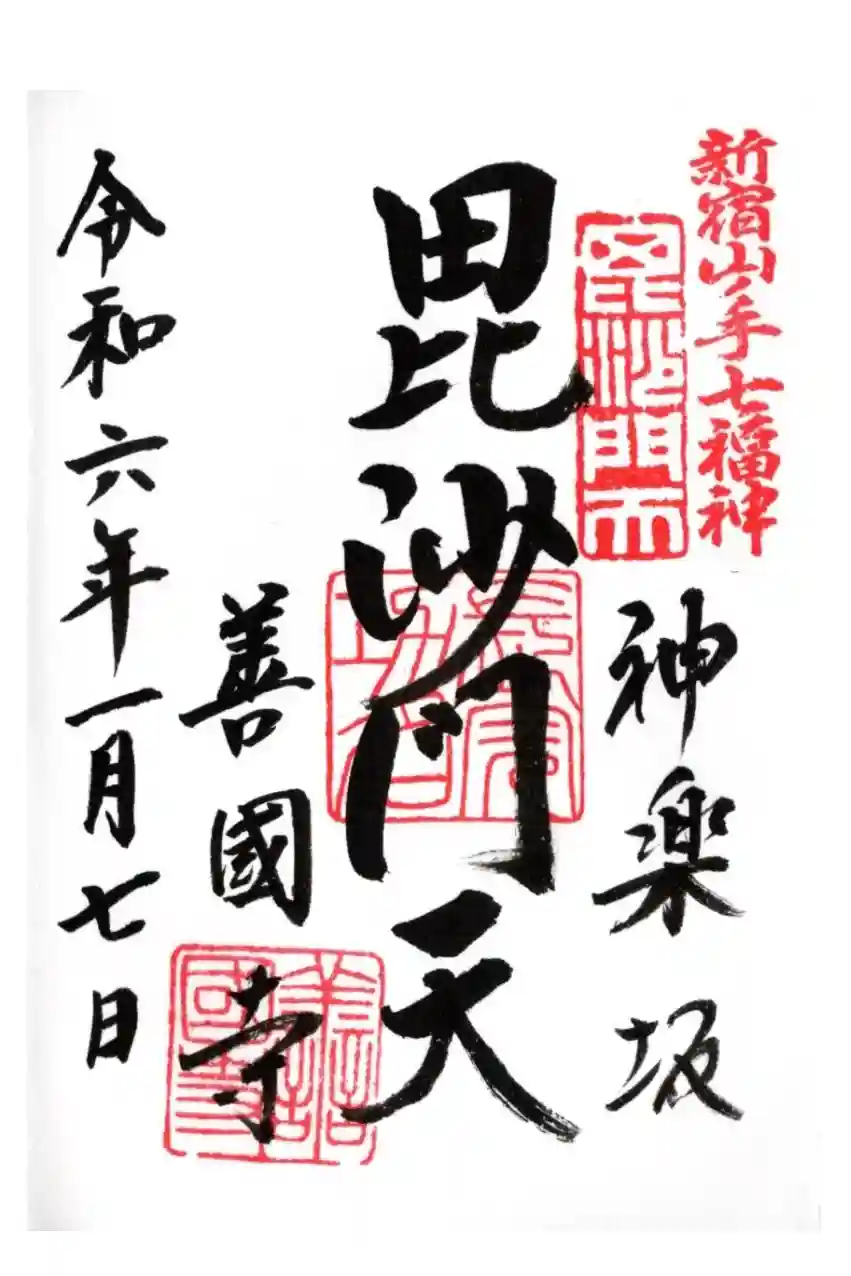 新宿山ノ手七福神
毘沙門天
神楽坂
毘沙門天
善國寺
令和六年一月七日